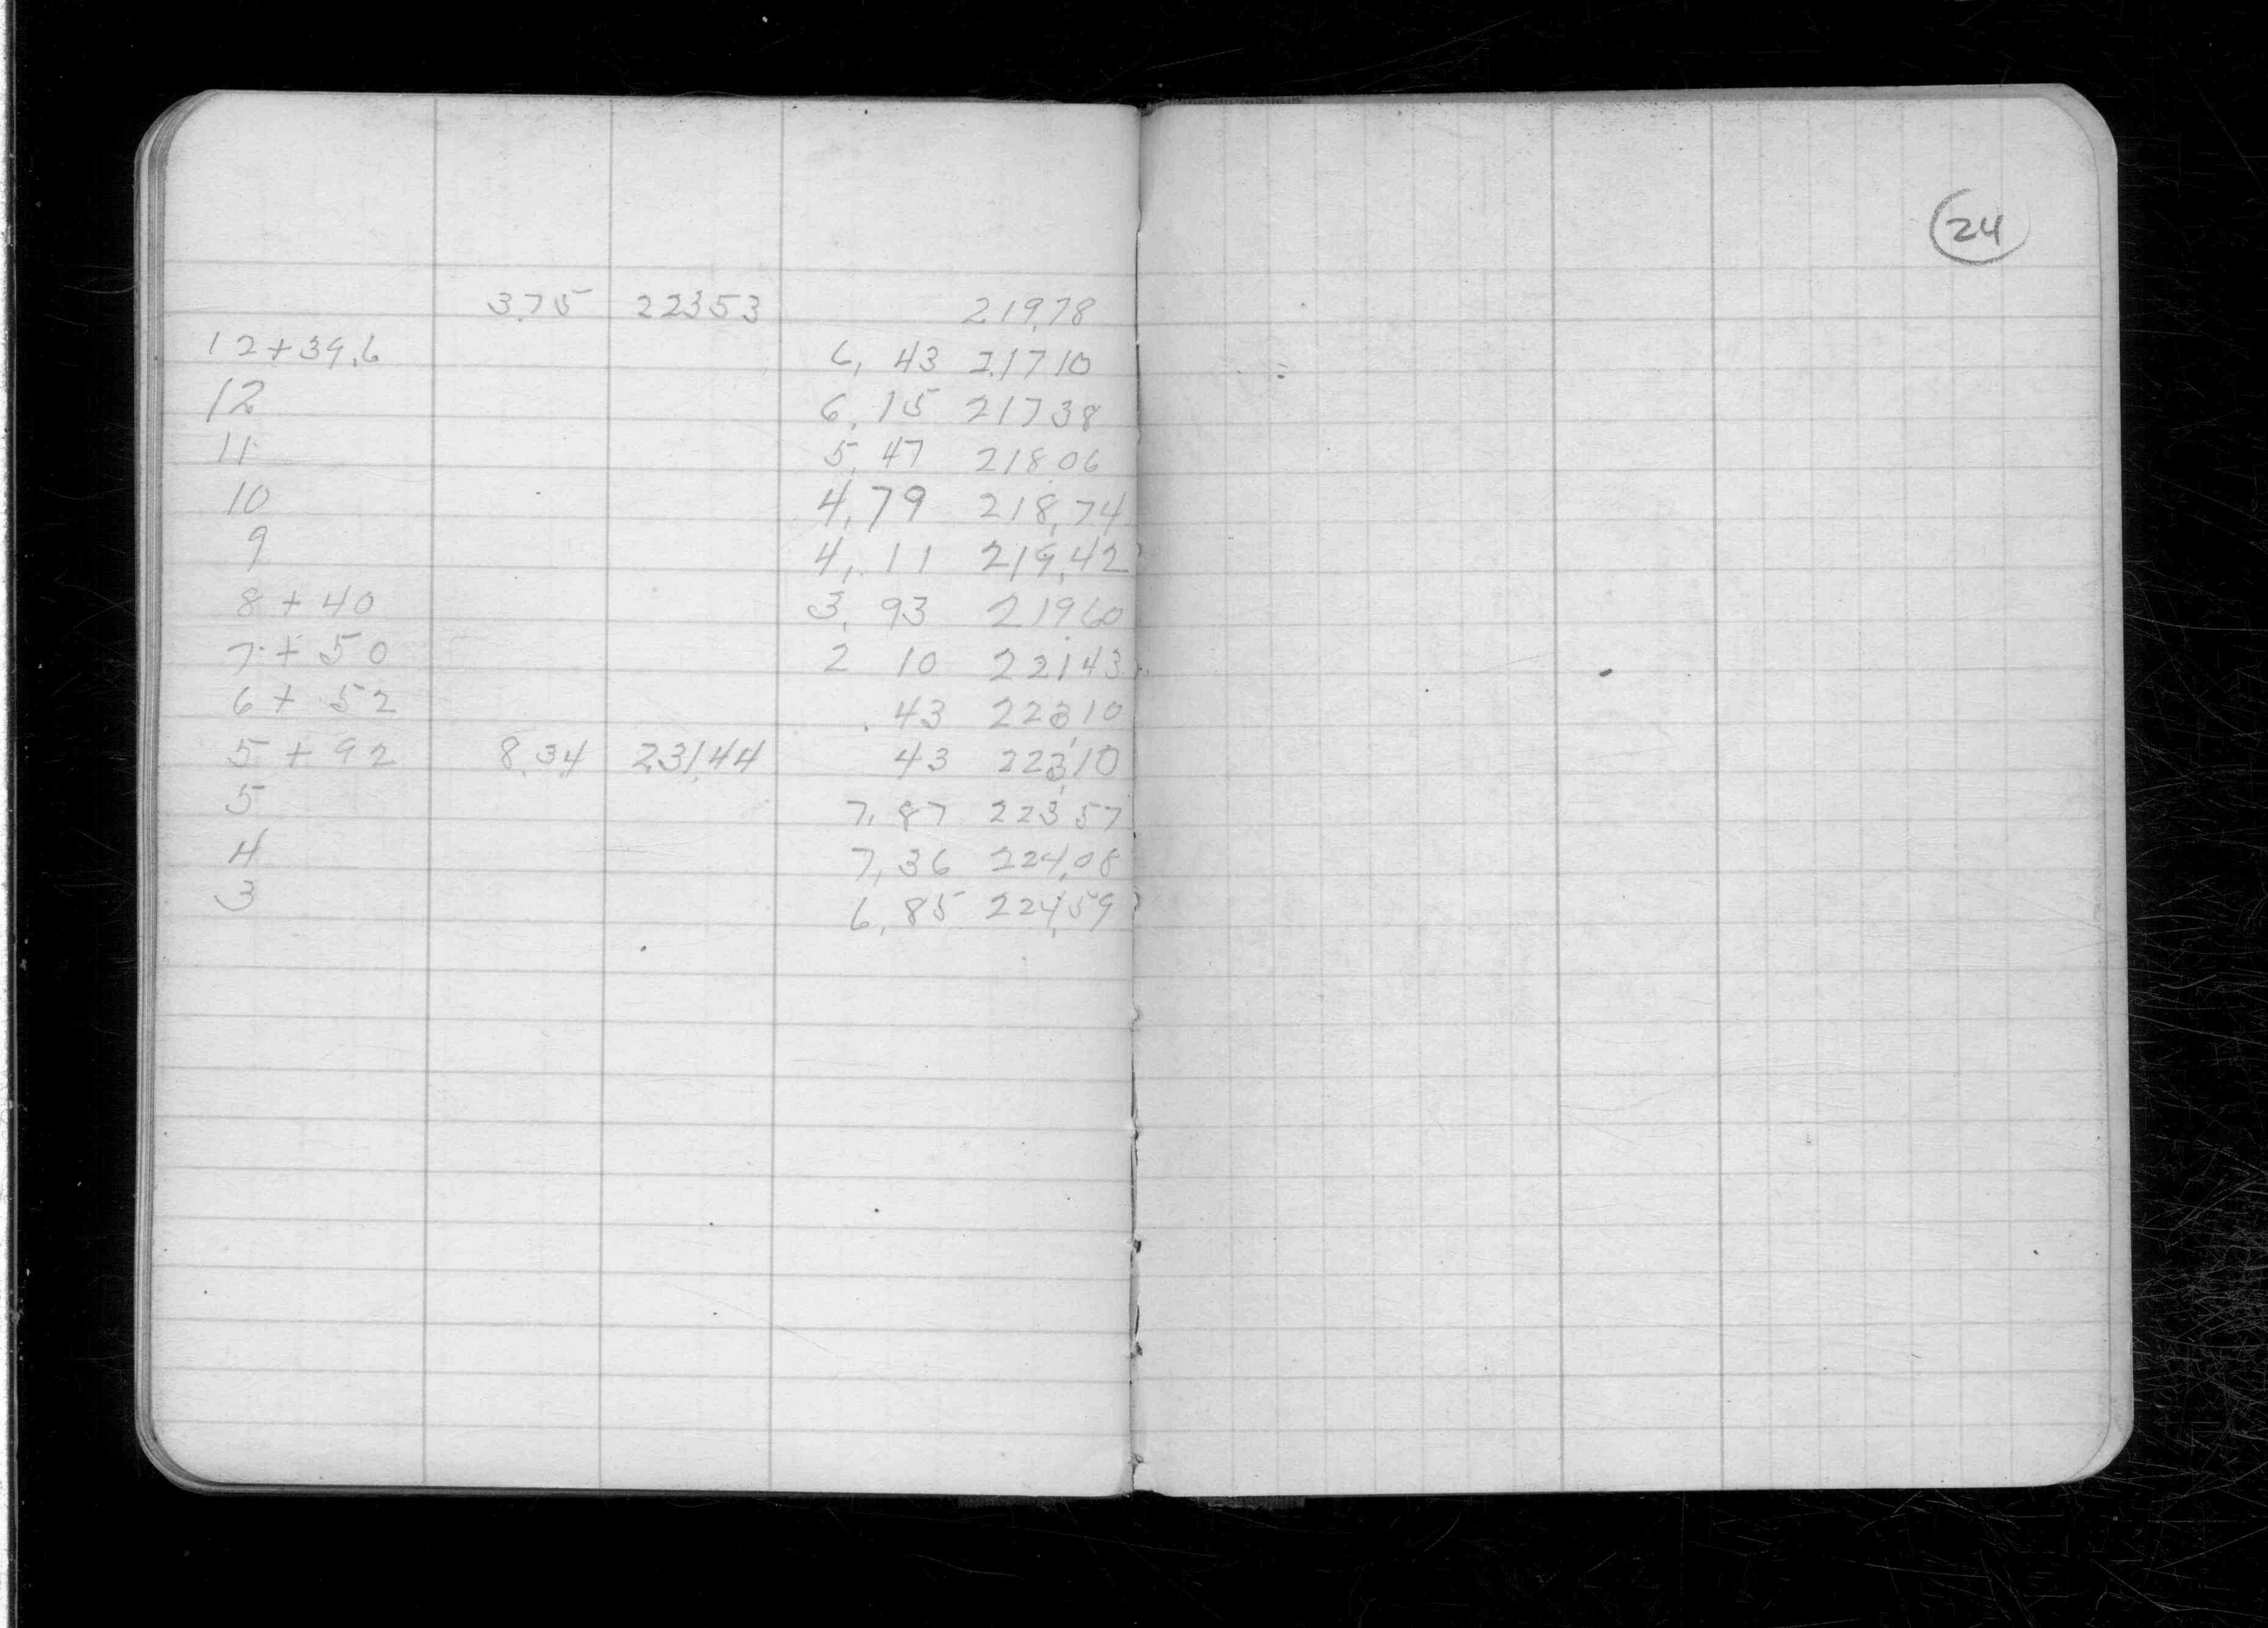 3.75 22353 219.78
12+39.6 6, 43 21710
12 6, 15 21738
11 5, 47 218.06
10 4,79 218,74
9 4, 11 219,42
8 + 40 3, 93 219.60
7 + 50 2 10 22143
6 + 52 43 22310
5 + 92 8.34 231,44 43 223,10
5 7, 87 223,57
4 7, 36 224,08
3 6, 85 224,59
24